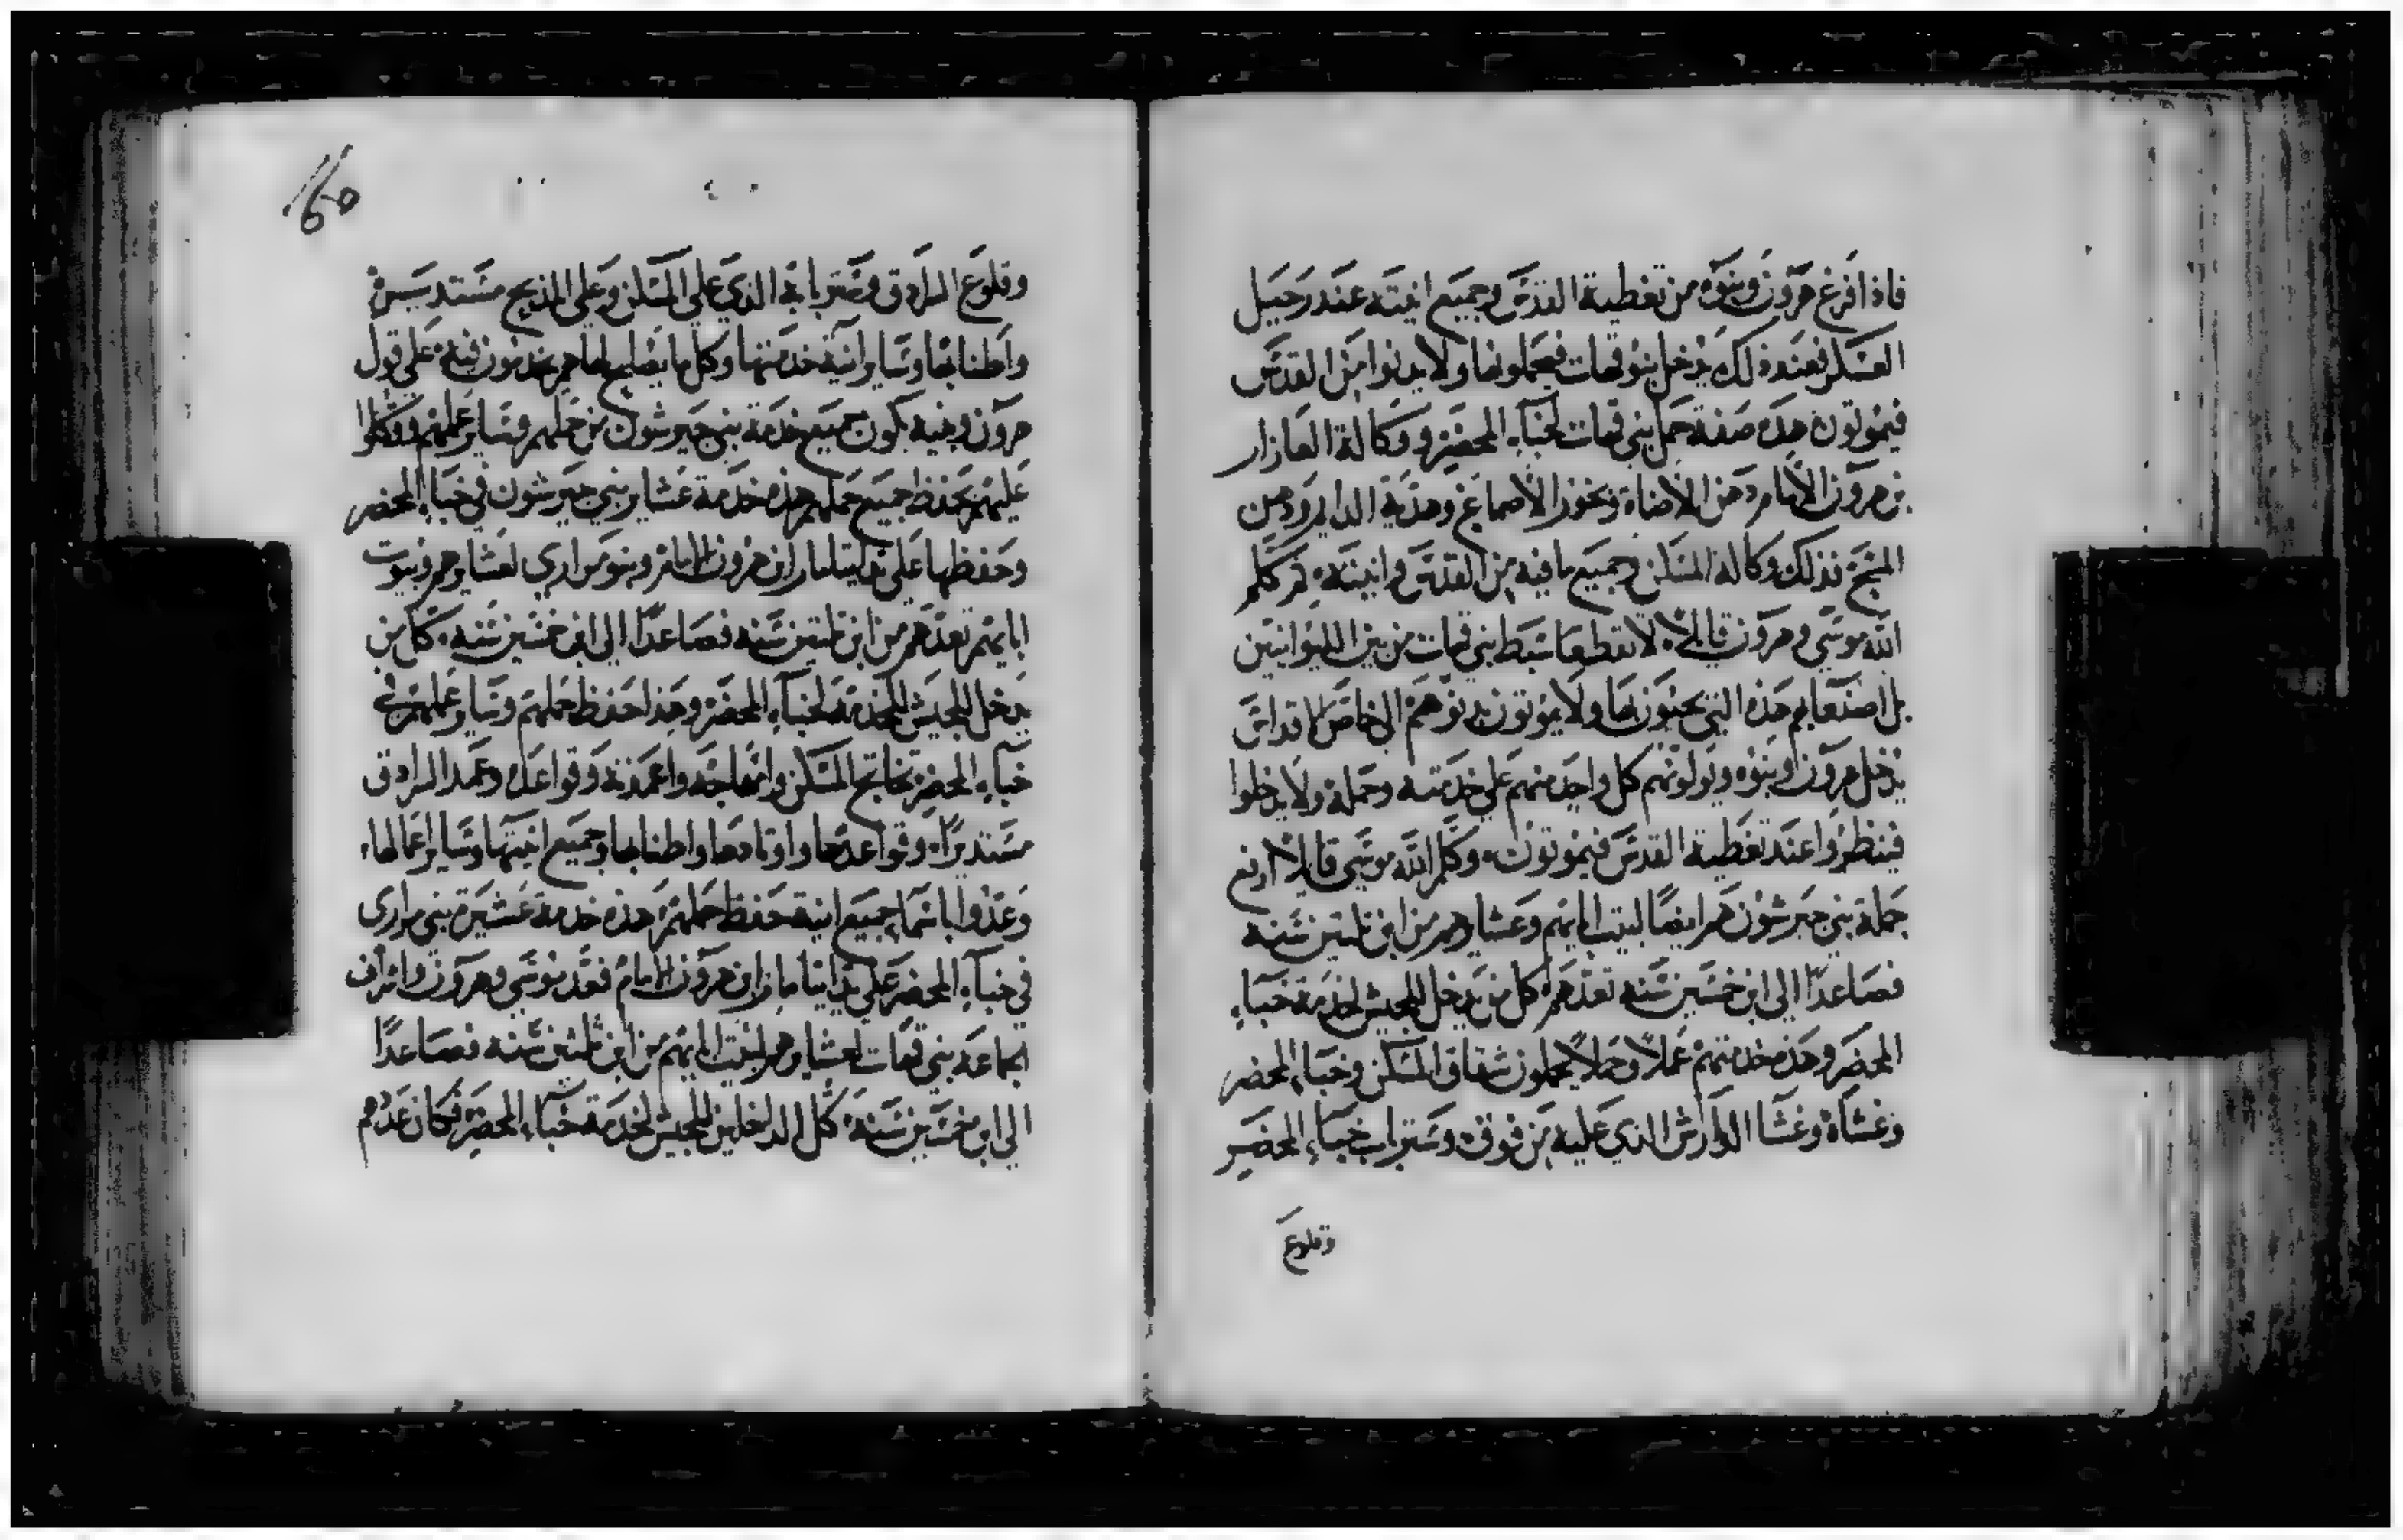 فاذا فرغ هرون وبنوه من تغطية القدس وجميع انيته عند رحيل
العسكر فعند ذلك يدخل بنو قهات فيحملونها ولا يدنوا من القدس
فيموتون هذه صفة حمل بني قهات لخباء المحضر ووكالة العازار
بن هرون الامام دهن الاضاة وبخور الاصماغ وهدية الدايم ودهن
المسح فذلك وكالة المسكن وجميع ما فيه من القدس وانيته ثم كلم
الله موسى وهرون قايلا لا تقطعا سبط بني قهات من بين الليوانيين
بل اصنعا بهم هذه التي يحيون بها ولا يموتون بدنوهم الى خاص الاقداس
يدخل هرون وبنوه ويولونهم كل واحد منهم على خدمته وحمله ولا يدخلوا
فينظروا عند تغطية القدس فيموتون وكلم الله موسى قايلا ارفع
جملة بني جيرشون هم ايضا لبيت ابايهم وعشايرهم من ابن ثلثين سنه
فصاعدا الى ابن خمسين سنه تعدهم كل من يدخل للجيش لخدمة خباء
المحضر وهذه خدمتهم عملا وحملا يحملون شقاق المسكن وخباء المحضر
وغشاه وغشا الدارش الذي عليه من فوق وستر باب خباء المحضر
وقلوع
60
وقلوع السرادق وستر بابه الذي على المسكن وعلى المذبح مستديره
واطنابها وساير انية خدمتها وكل ما يصلح لها هم يخدمون فيه على قول
هرون وبنيه يكون جميع خدمة بني جيرشون من حملهم وساير عملهم ووكلوا
عليهم بحفظ جميع حملهم هذه خدمة عشاير بني جيرشون في خباء المحضر
وحفظها على يد ايتامار ابن هرون الامام وبنو مراري لعشايرهم وبيوت
ابايهم تعدهم من ابن ثلثين سنه فصاعدا الى ابن خمسين سنه كل من
يدخل للجيش للخدمة لخباء المحضر وهذا حفظ حملهم وساير عملهم في
خباء المحضر تخاتج المسكن وامهاجه واعمدته وقواعده وعمد السرادق
مستديرا وقواعدها واوتادها واطنابها وجميع انيتها وساير اعمالها
وعدوا باسما جميع انية حفظ حملهم هذه خدمة عشيرة بني مراري
في خباء المحضر على يد ايتامار ابن هرون الامام فعد موسى وهرون واشراف
الجماعه بني قهات لعشايرهم لبيت ابايهم من ابن ثلثين سنه فصاعدا
الى ابن خمسين سنه كل الداخلين للجيش لخدمة خباء المحضر فكان عددهم